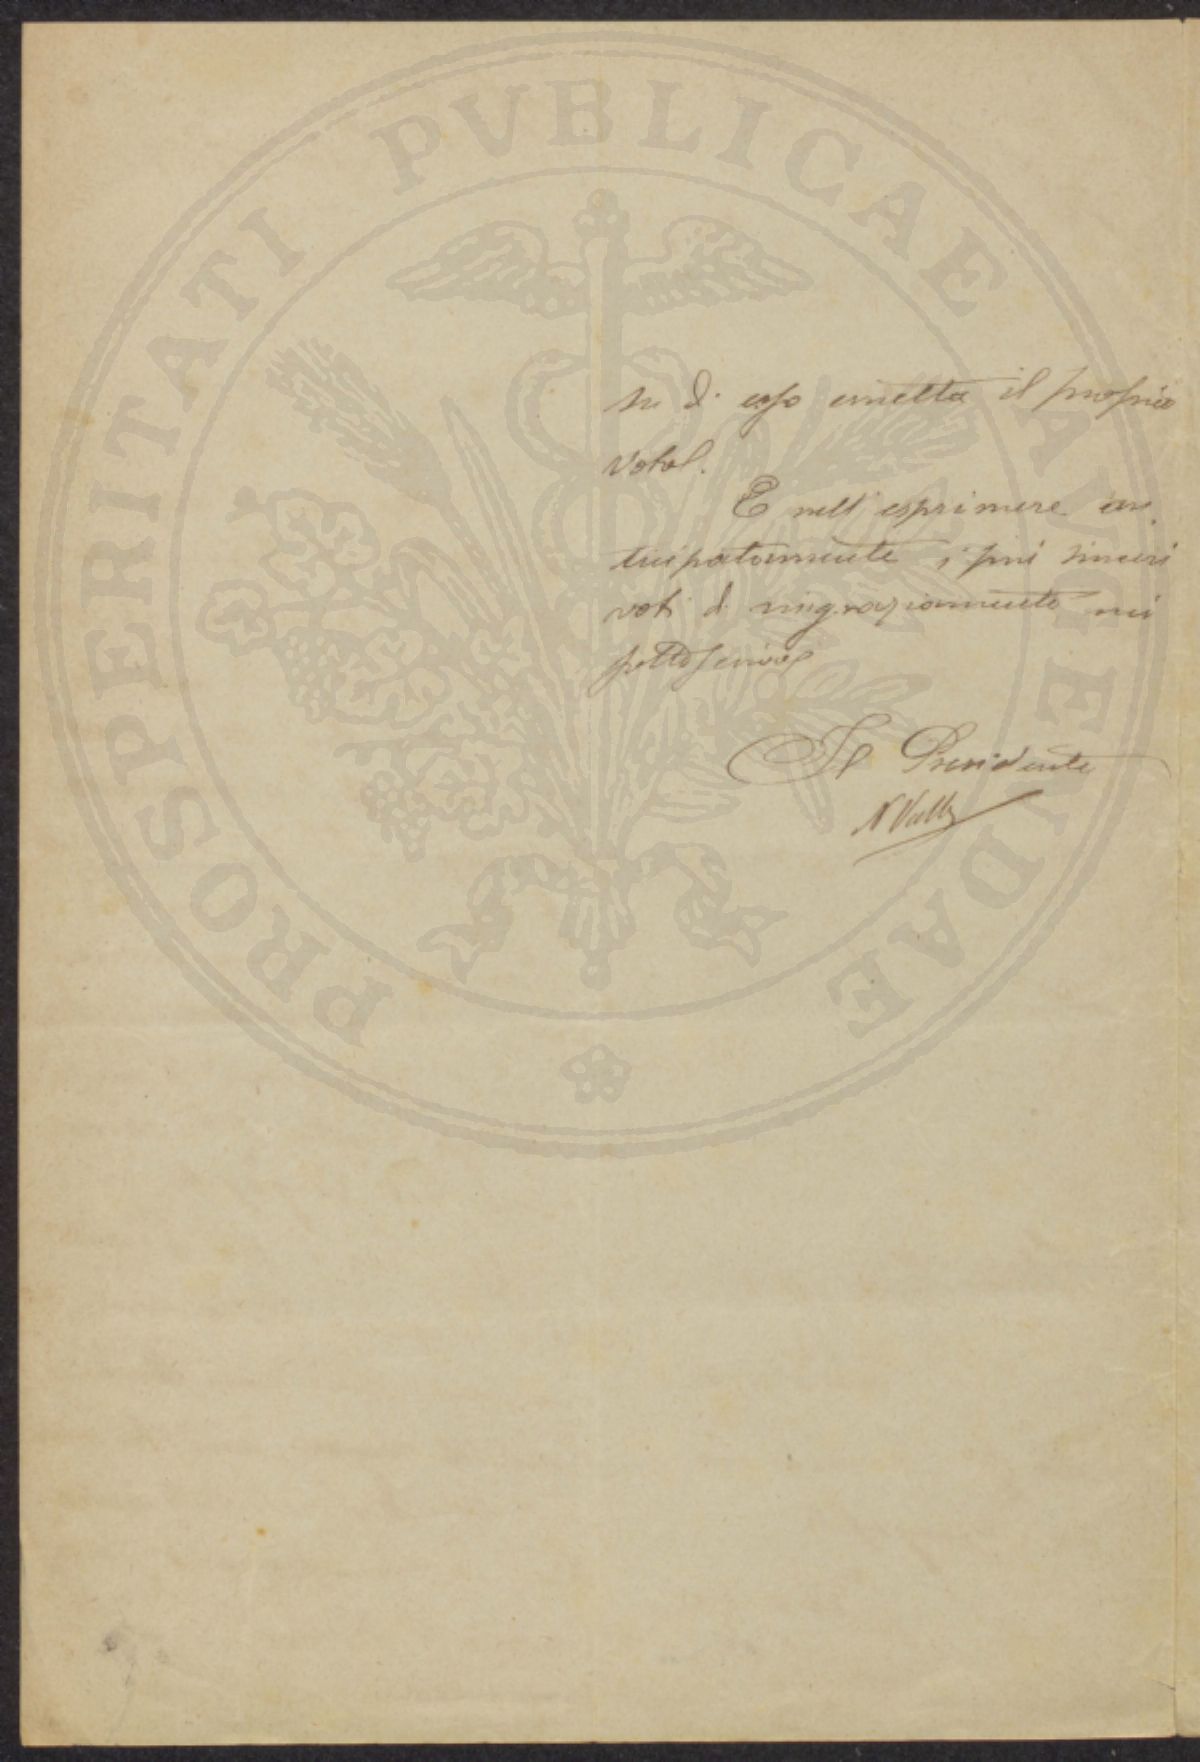 PROSPERITATI PVBLICAE AVGENDAE
su di esso emetta il proprio
voto.
E nell'esprimere an
ticipatamente i più sinceri
voti di ringraziamento mi
sottoscrivo
Il Presidente